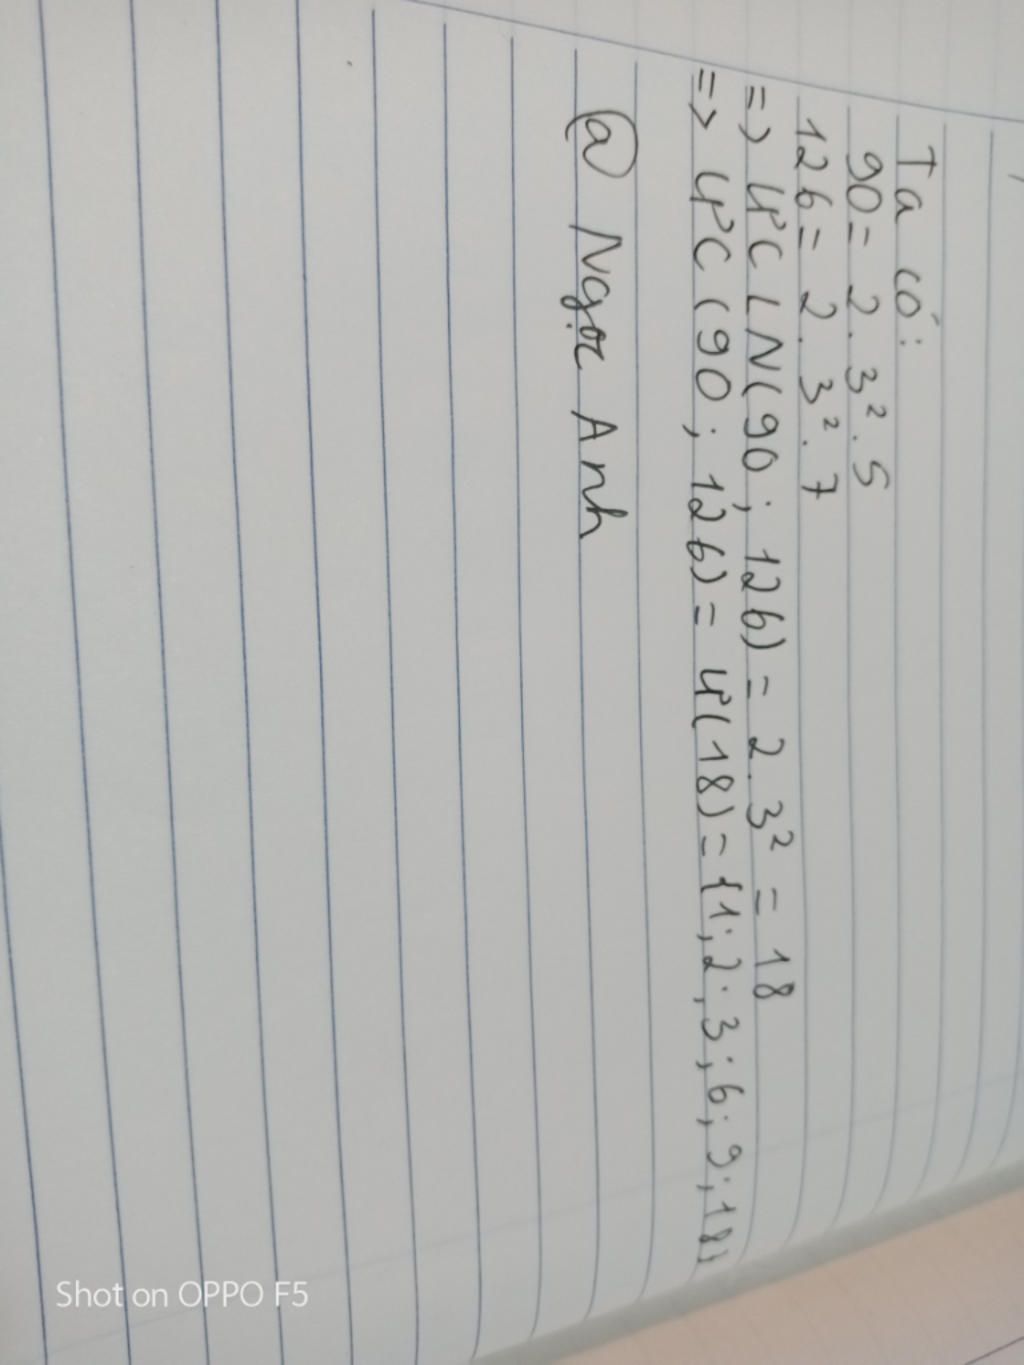 Ta có:
90 = 2 . 3² . 5
126 = 2 . 3² . 7
=> ƯCLN(90 ; 126) = 2 . 3² = 18
=> ƯC (90 ; 126) = Ư(18) = {1; 2; 3; 6; 9; 18}
@ Ngọc Anh
Shot on OPPO F5